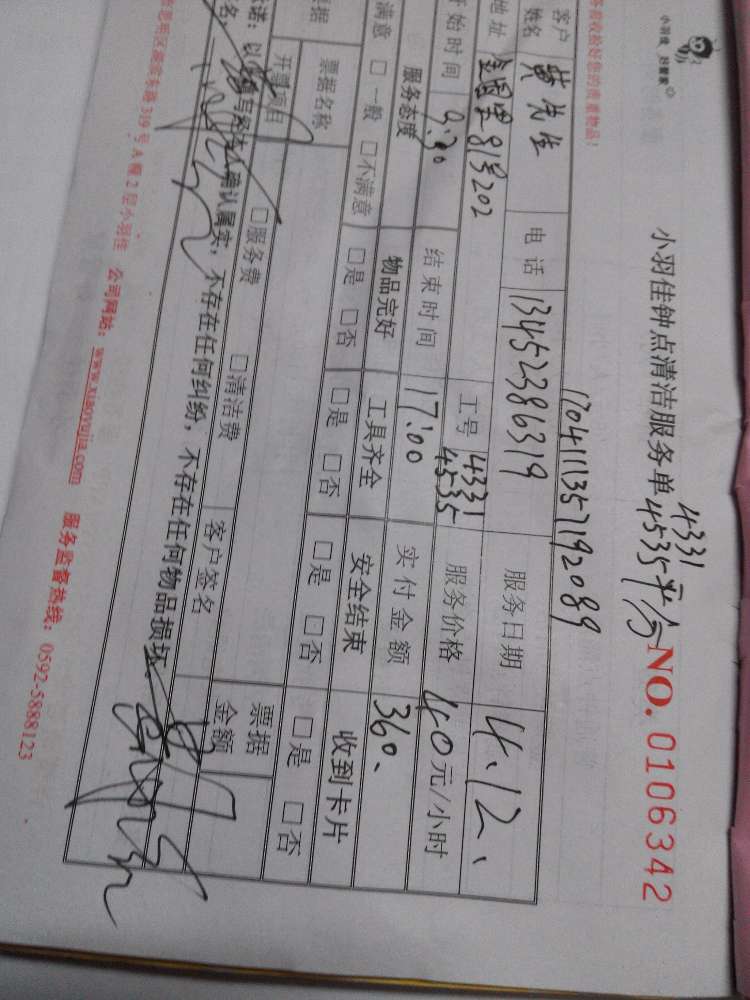 小羽佳 好管家
小羽佳钟点清洁服务单 4331
4535平分
NO. 0106342
您收拾好您的贵重物品!
1704111357192089
客户姓名 黄先生 电话 13452386319 服务日期 4.12、
地址 金国里81号202 工号 4331 4535 服务价格 40元/小时
开始时间 9:30 结束时间 17:00 实付金额 360、
服务态度 物品完好 工具齐全 安全结束 收到卡片
满意 □一般 □不满意 □是 □否 □是 □否 □是 □否 □是 □否
票据 票据名称 票据金额
开票项目 □服务费 □清洁费 客户签名
诺:以 填写经本人确认属实,不存在任何纠纷,不存在任何物品损坏。
思明区湖滨东路319号A幢2层小羽佳 公司网站:www.xiaoyujia.com 服务监督热线:0592-5888123